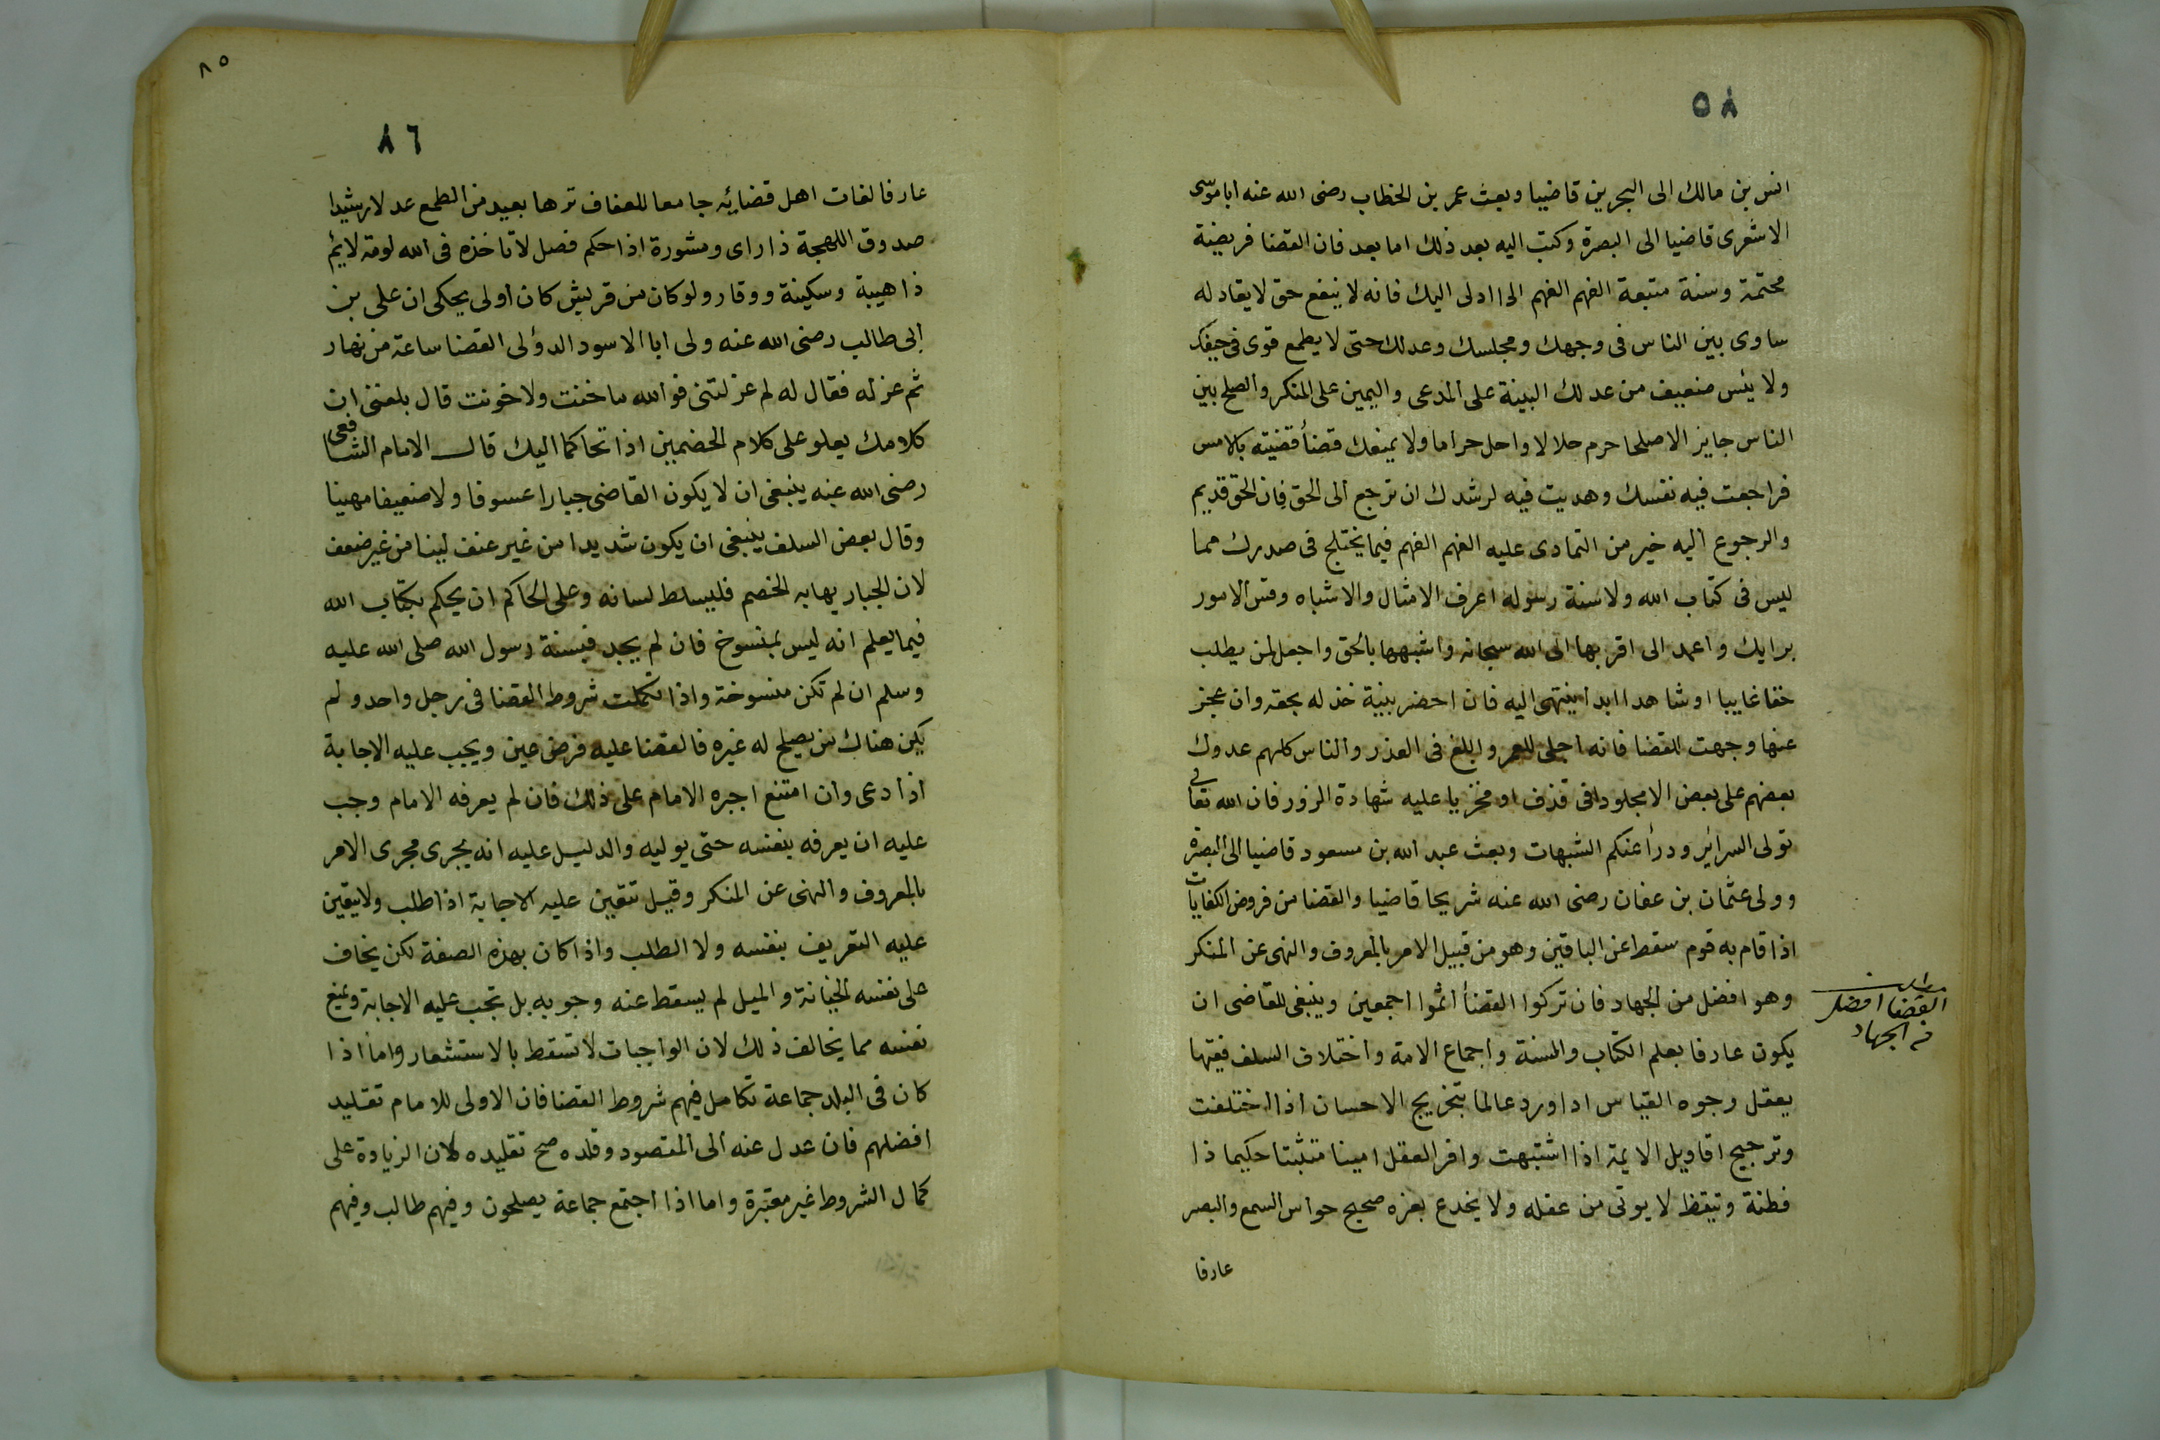 ٥٨
انس بن مالك الى البحرين قاضيا وبعث عمر بن الخطاب رضى الله عنه ابا موسى
الاشعرى قاضيا الى البصرة وكتب اليه بعد ذلك اما بعد فان القضا فريضة
محتمة وسنة متبعة الفهم الفهم اذا ادلى اليك فانه لا ينفع حق لا يقاد له
ساوى بين الناس فى وجهك ومجلسك وعدلك حتى لا يطمع قوى فى حيفك
ولا يئس ضعيف من عدلك البينة على المدعى واليمين على المنكر والصلح بين
الناس جايز الا صلحا حرم حلالا واحل حراما ولا يمنعك قضأ قضيته بالامس
فراجعت فيه نفسك وهديت فيه لرشدك ان ترجع الى الحق فان الحق قديم
والرجوع اليه خير من التمادى عليه الفهم الفهم فيما يختلج فى صدرك مما
ليس فى كتاب الله ولا سنة رسوله اعرف الامثال والاشباه وقس الامور
برايك واعمد الى اقربها الى الله سبحانه واشبهها بالحق واجعل لمن يطلب
حقا غايبا او شاهدا ابدا ينتهى اليه فان احضر بينة خذ له بحقه وان عجز
عنها وجهت القضا فانه اجلى للعمر وابلغ فى العذر والناس كلهم عدول
بعضهم على بعض الا مجلودا فى قذف او مخزيا عليه شهادة الزور فان الله تعالى
تولى السرائر ودرأ عنكم الشبهات وبعث عبد الله بن مسعود قاضيا الى البصرة
وولى عثمان بن عفان رضى الله عنه شريحا قاضيا والقضا من فروض الكفايات
اذا قام به قوم سقط عن الباقين وهو من قبيل الامر بالمعروف والنهى عن المنكر
وهو افضل من الجهاد فان تركوا القضأ اثموا اجمعين وينبغى للقاضى ان
القضا افضل
من الجهاد
يكون عارفا بعلم الكتاب والسنة واجماع الامة واختلاف السلف فقيها
يعقل وجوه القياس اذا ورد عالما بتخريج الاحسان اذا اختلفت
وترجيح اقاويل الايمة اذا اشتبهت وافر العقل امينا متثبتا حكيما ذا
فطنة وتيقظ لا يوتى من عقله ولا يخدع بغره صحيح حواس السمع والبصر
عارفا
٨٥
٨٦
عارفا لغات اهل قضايه جامعا للعفاف نزها بعيد من الطمع عدلا رشيدا
صدوق اللهجة ذا راى ومشورة اذا حكم فصل لا تاخذه فى الله لومة لايم
ذا هيبة وسكينة ووقار ولو كان من قريش كان اولى يحكى ان على بن
ابى طالب رضى الله عنه ولى ابا الاسود الدؤلى القضا ساعة من نهار
ثم عزله فقال له لم عزلتنى فو الله ما خنت ولا خونت قال بلغنى ان
كلامك يعلو على كلام الخصمين اذا تحاكما اليك قال الامام الشافعى
رضى الله عنه ينبغى ان لا يكون القاضى جبارا عسوفا ولا ضعيفا مهينا
وقال بعض السلف ينبغى ان يكون شديدا من غير عنف لينا من غير ضعف
لان الجبار يهابه الخصم فليبسلط لسانه وعلى الحاكم ان يحكم بكتاب الله
فيما يعلم انه ليس بمنسوخ فان لم يجد فبسنة رسول الله صلى الله عليه
وسلم ان لم تكن منسوخة واذا تكملت شروط القضا فى رجل واحد ولم
يكن هناك من يصلح له غيره فالقضا عليه فرض عين ويجب عليه الاجابة
اذا دعى وان امتنع اجبره الامام على ذلك فان لم يعرفه الامام وجب
عليه ان يعرفه بنفسه حتى يوليه والدليل عليه انه يجرى مجرى الامر
بالمعروف والنهى عن المنكر وقيل تتعين عليه الاجابة اذا طلب ولا يتعين
عليه التعريف بنفسه ولا الطلب واذا كان بهذه الصفة لكن يخاف
على نفسه الخيانة والميل لم يسقط عنه وجوبه بل تجب عليه الاجابة ويمنع
نفسه مما يخالف ذلك لان الواجبات لا تسقط بالاستشعار واما اذا
كان فى البلد جماعة تكامل فيهم شروط القضا فان الاولى للامام تقليد
افضلهم فان عدل عنه الى المقصود وقلده صح تقليده لان الزيادة على
كمال الشروط غير معتبرة واما اذا اجتمع جماعة يصلحون وفيهم طالب وفيهم